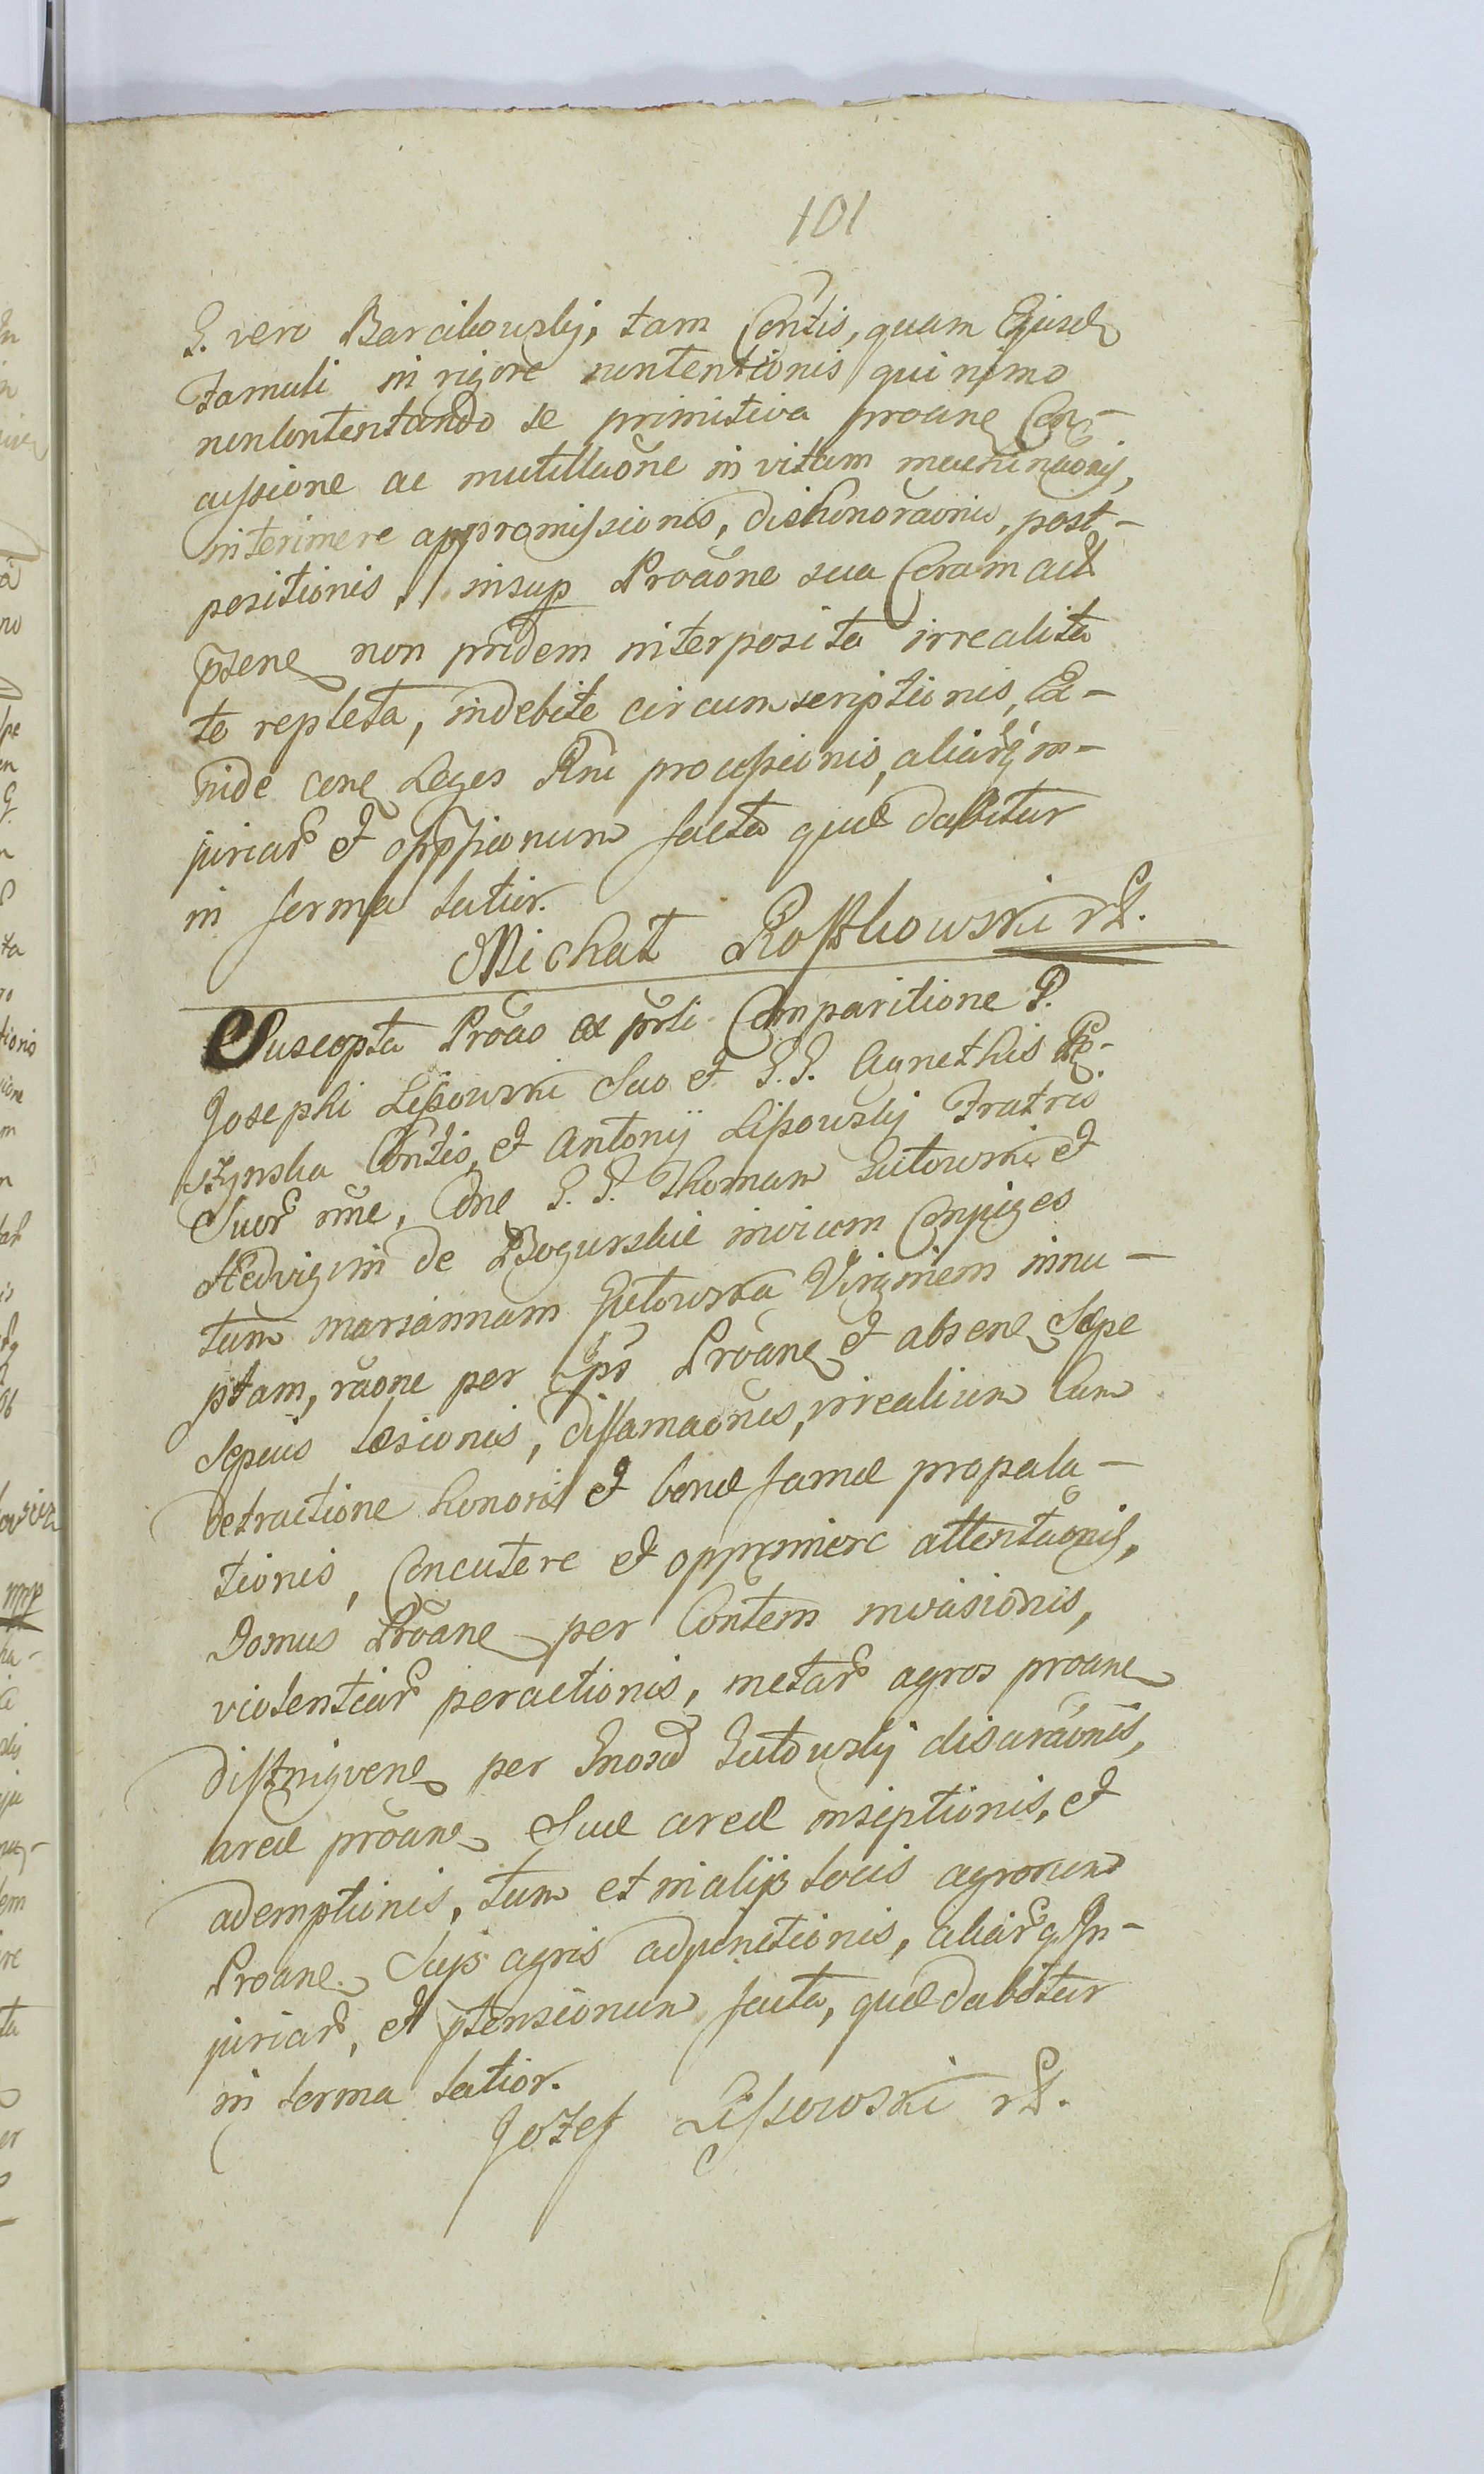 101
G. vero Barcikowskij, tam Contis, quam Ejusd
famuli in rigore nontentionis quinimo
nonContentando se primitiva proane Con-
cussione ac mutillaone in vitam machinaonis,
interimere appromissionis, dishonoraonis, post-
positionis, insup Proaone sua Coram act
ptene non pridem interposita irrealita
te repleta, indebite circumscriptionis, Ex-
inde cone Leges Rni processionis, aliarq in-
juriar et oppssionum facta quæ dabitur
in forma latior.
Michał Rostkowski rt.
Suscepta Proao ex prsli Comparitione G.
Josephi Lissowski Suo et G. G. Agnethis
szynska Contis, et Antonij Lissowskij Fratris
Suor nne, Cone G. G. Thomam Gutowski et
Hedvigim de Bogurskie invicem Conjuges
tum mariannam Gutowska Virginem innu-
ptam, raone per ips Proane et absene Sæpe
Sæpius læsionis, diffamaonis, irrealium Cum
detractione honoris et bonæ famæ propala-
tionis, Concutere et opprimere attentaonis,
Domus Proane per Contem invasionis,
violentiar peractionis, metar agros proane
distingvene per Gnosd Gutowskij disaraonis,
areæ proane Suæ areæ inseptionis, et
ademptionis, tum et in alijs locis agrorum
Proane Suis agris adjunctionis, aliarq In-
juriar, et ptensionum facta, quæ dabitur
in forma latior.
Jozef Lissowski rt.